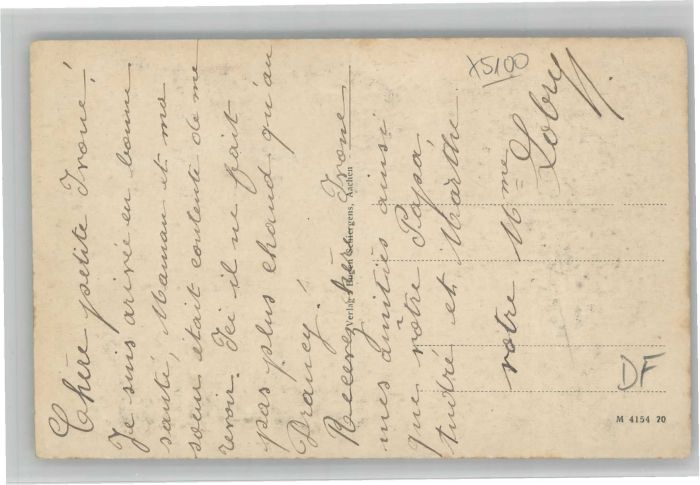 Chère petite Ivone!
Je suis arivée en bonne
santé, Maman et ma
soeur était contente de me
revoir. Ici il ne fait
pas plus chaud qu'au
Drancy!
Recevez Ivone
mes amitiés ainsi
que vôtre Papa
André et Marthe.
votre Mme
Lobry
Verlag: Hugen Schiergens, Aachen
X5100
DF
M 4154 20